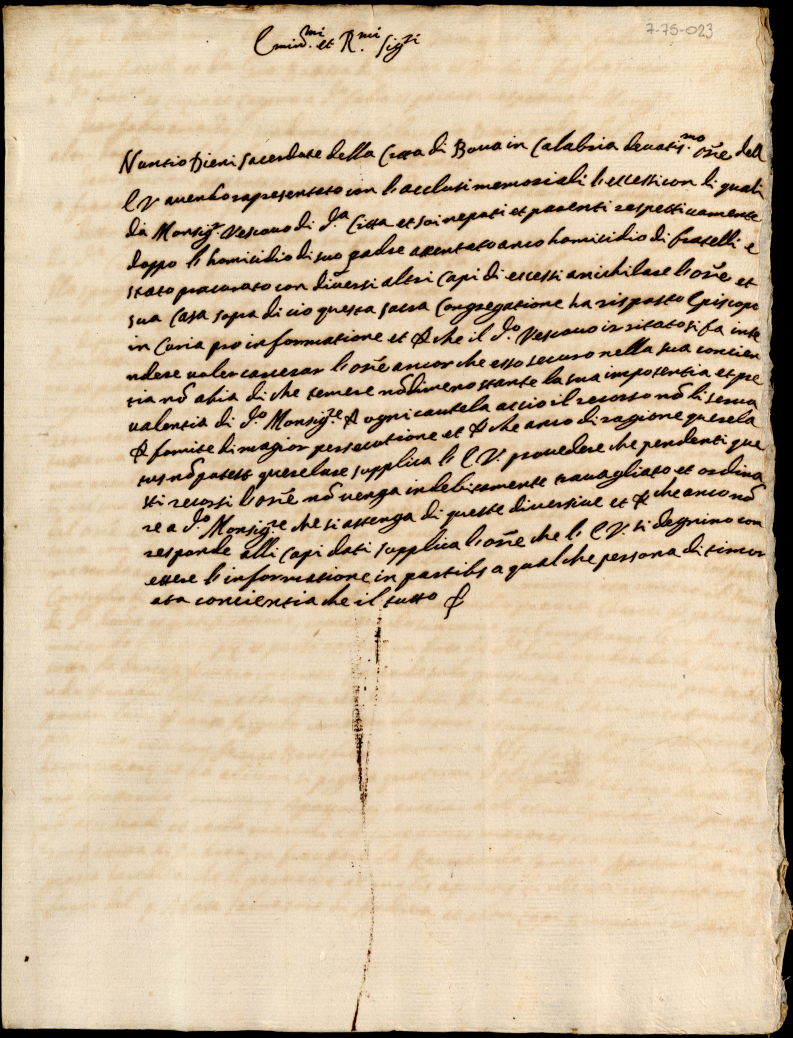 7-75-023
Emin.mi et R.mi Sig.ri
Nuntio Dieni sacerdote della Citta di Bova in Calabria devotis.mo ore dell
E V avendo rapresentato con l'acclusi memoriali l'eccessi con li quali
da Monsig.r Vescovo di d.a Citta et soi nepoti et parenti respettivamente
doppo l'homicidio di suo padre attentato anco homicidio di fratelli e
stato procurato con diversi altri capi di eccessi anichilare l'ore et
sua Casa sopra di cio questa sacra Congregatione ha risposto Episcopo
in Curia pro informatione et ꝑ che il d.o Vescovo irritato si fa inte
ndere voler carcerar l'ore ancor che esso securo nella sua concien
tia nõ abia di che temere nõdimeno stante la sua impotentia et pre
valentia di d.o Monsig.re ꝑ ogni cautela accio il recorso nõ li serva
ꝑ fomite di magior persecutione et ꝑ che anco di ragione querela
tus nõ potest querelare supplica l'E V. provedere che pendenti que
sti recorsi l'ore nõ venga indebitamente travagliato et ordina
re a d.o Monsig.re che si astenga di queste diversive et ꝑ che anco nõ
responde alli capi dati supplica l'ore che l'E V. si degnino com
ettere l'informatione in partibs a qualche persona di timor
ata concientia che il tutto ꝑ